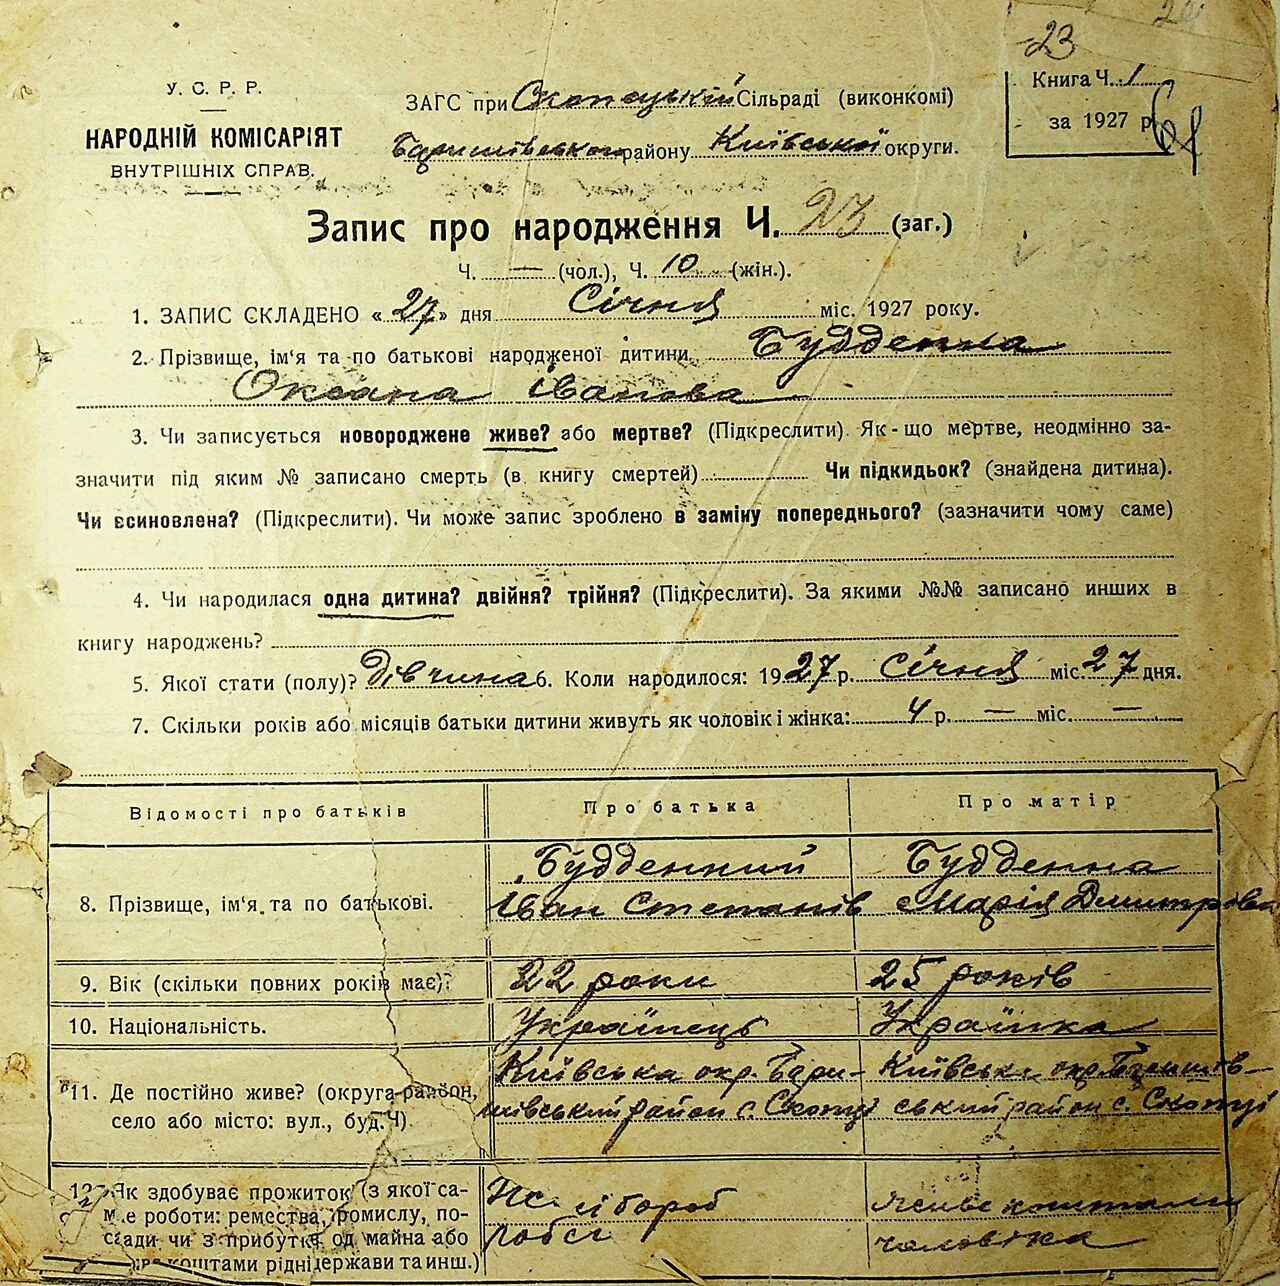 23
У. С. Р. Р.
НАРОДНІЙ КОМІСАРІЯТ
ВНУТРІШНІХ СПРАВ.
ЗАГС при Скопецькій Сільраді (виконкомі)
Баришівського району Київської округи.
Книга Ч. 1
за 1927 р.
Запис про народження Ч. 23 (заг.)
Ч. — (чол.), Ч. 10 (жін.).
1. ЗАПИС СКЛАДЕНО «27» дня Січня міс. 1927 року.
2. Прізвище, ім'я та по батькові народженої дитини Будденна
Оксана Іванова
3. Чи записується новороджене живе? або мертве? (Підкреслити). Як-що мертве, неодмінно за-
значити під яким № записано смерть (в книгу смертей) Чи підкидьок? (знайдена дитина).
Чи всиновлена? (Підкреслити). Чи може запис зроблено в заміну попереднього? (зазначити чому саме)
4. Чи народилася одна дитина? двійня? трійня? (Підкреслити). За якими №№ записано инших в
книгу народжень?
5. Якої стати (полу)? Дівчина 6. Коли народилося: 1927 р. Січня міс. 27 дня.
7. Скільки років або місяців батьки дитини живуть як чоловік і жінка: 4 р. — міс. —
Відомості про батьків Про батька Про матір
8. Прізвище, ім'я та по батькові. Будденний Будденна
Іван Степанів Марія Дмитрівна
9. Вік (скільки повних років має)? 22 роки 25 років
10. Національність. Українець Українка
11. Де постійно живе? (округа-район, Київська окр. Бари- Київська окр. Баришів-
село або місто: вул., буд. Ч). шівський район с. Скопці ський район с. Скопці
12. Як здобуває прожиток (з якої са- хлібороб живе коштами
ме роботи: ремества, промислу, по- чоловіка
сади чи з прибутків од майна або
коштами рідні держави та инш.)